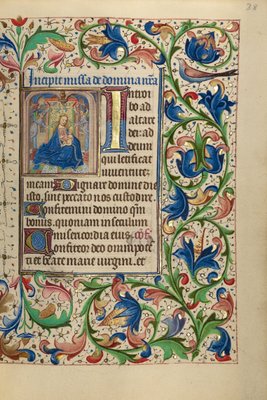 38
Incipit missa de domina nr̄a
Introi
bo ad
altare
dei: ad
deum
qui letificat
iuuentutē
meam Dignare domine die
isto, sine peccato nos custodire.
Confitemini domino qm̄
bonus. quoniam in seculum
misericordia eius
Confiteor deo omnipotē
ti et beate marie uirgini. et